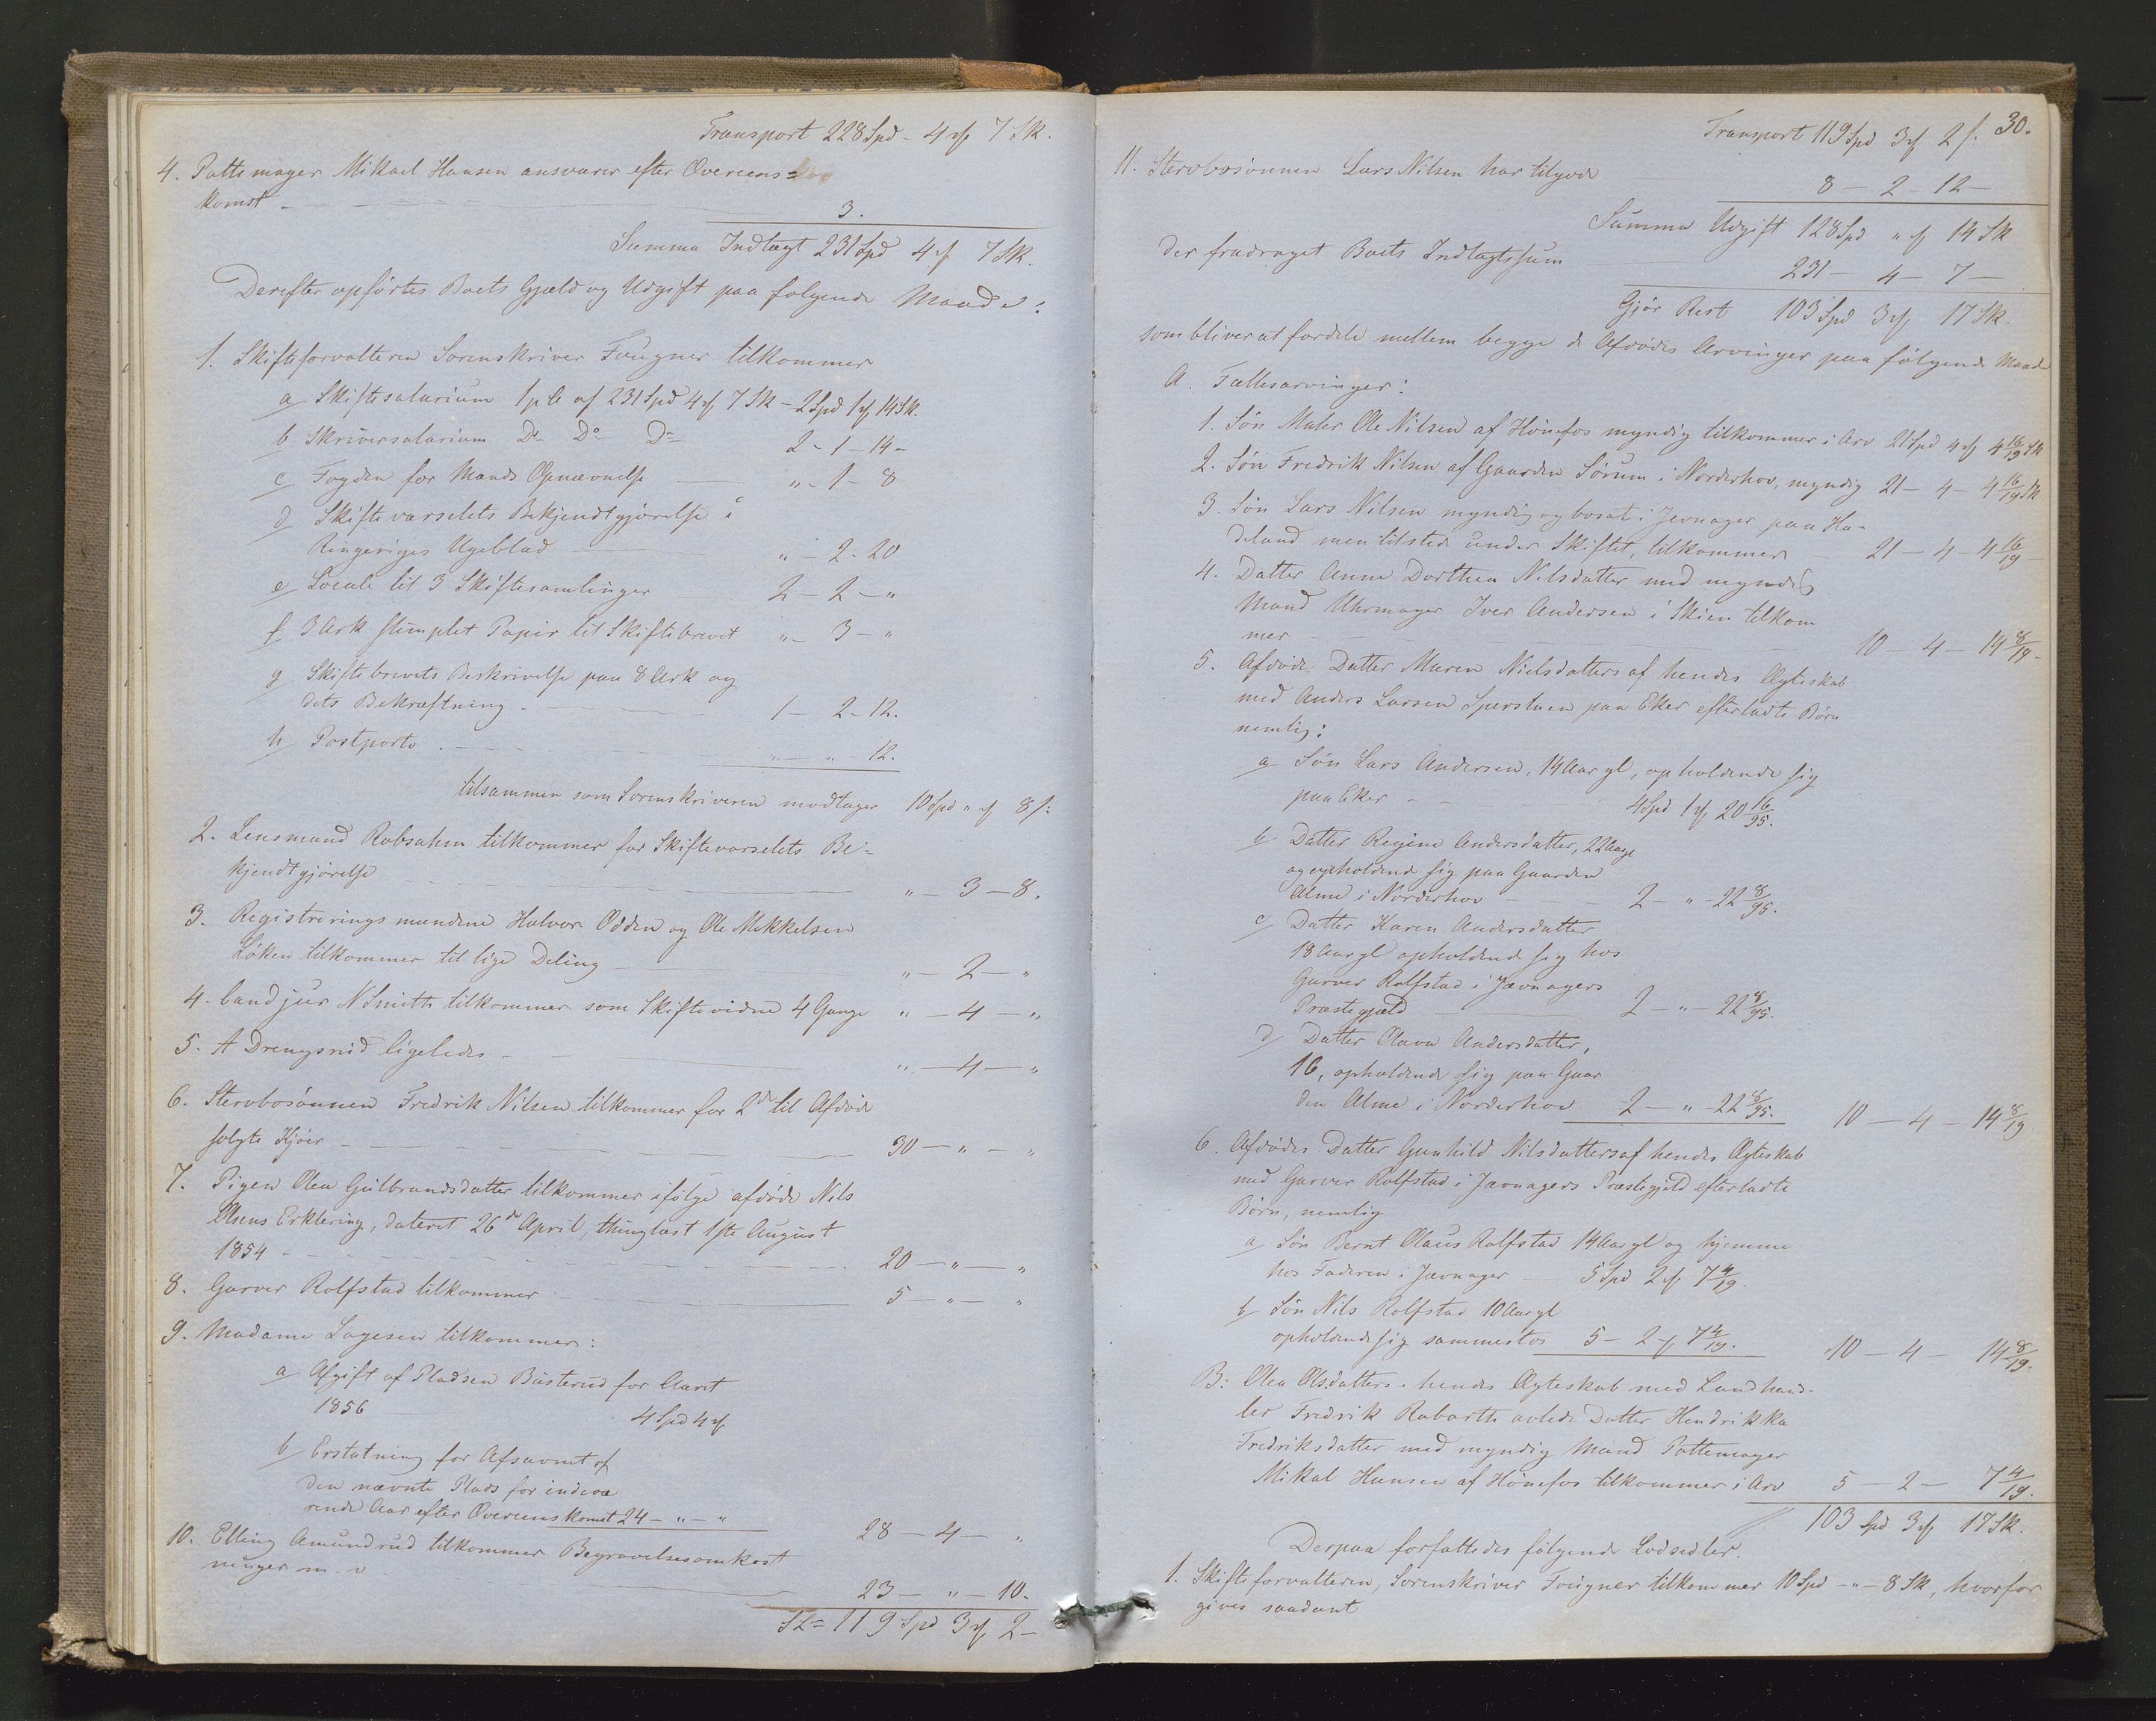 Transport 228 Spd - 4 # 7 Sk.
4. Pottemager Mikael Hansen ansvarer efter Overeens=
komst - 3.
Summa Indtægt 231 Spd 4 # 7 Sk.
Derefter opførtes Boets Gjæld og Udgift paa følgende Maade:
1. Skifteforvalteren Sorenskriver Fougner tilkommer
a/ Skiftesalarium 1 p C af 231 Spd 4 # 7 Sk - 2 Spd 1 # 14 Sk.
b Skriversalarium Do Do Do 2 - 1 - 14 -
c/ Fogden for Mands Opnævnelse " - 1 - 8
d/ Skiftevarselets Bekjendtgjørelse i
Ringeriges Ugeblad " - 2 - 20
e/ Locale til 3 Skiftesamlinger 2 - 2 - "
f/ 3 Ark stemplet Papir til Skiftebrevet " - 3 - "
g/ Skiftebrevets Beskrivelse paa 8 Ark og
dets Bekræftning - 1 - 2 - 12.
h/ Postporto - " - " - 12.
tilsammen som Sorenskriveren modtager 10 Spd " # 8 s:
2. Lensmand Robsahm tilkommer for Skiftevarselets Be=
kjendtgjørelse " - 3 - 8.
3. Registreringsmændene Halvor Odden og Ole Mikkelsen
Løken tilkommer til lige Deling " - 2 - "
4. Cand jur N Smith tilkommer som Skiftevidne 4 Gange " - 4 - "
5. A Drengsrud ligeledes - " - 4 - "
6. Stervbosønnen Fredrik Nilsen tilkommer for 2de til Afdøde
solgte Kjøer - 30 - " - "
7. Pigen Olea Gulbrandsdatter tilkommer ifølge afdøde Nils
Olsens Erklæring, dateret 26de April, thinglæst 1ste August
1854 - 20 - " - "
8. Garver Rolfstad tilkommer 5 - " - "
9. Madame Lagesen tilkommer:
a/ Afgift af Pladsen Busterud for Aaret
1856 4 Spd 4 #
b/ Erstatning for Afsavnet af
den nævnte Plads for indevæ
rende Aar efter Overeenskomst 24 - " - " 28 - 4 - "
10. Elling Amundrud tilkommer Begravelsesomkost
ninger m. v 23 - " - 10.
Lt= 119 Spd 3 # 2 -
30.
Transport 119 Spd 3 # 2 s.
11. Stervbosønnen Lars Nilsen har tilgode 8 - 2 - 12 -
Summa Udgift 128 Spd " # 14 Sk
der fradraget Boets Indtægtssum 231 - 4 - 7 -
Gjør Rest 103 Spd 3 # 17 Sk.
som bliver at fordele mellem begge de Afdødes Arvinger paa følgende Maade
A. Fællesarvinger:
1. Søn Maler Ole Nilsen af Hønefos myndig tilkommer i Arv 21 Spd 4 # 4 16/19 Sk
2. Søn Fredrik Nilsen af Gaarden Sørum i Norderhov, myndig 21 - 4 - 4 16/19 Sk
3. Søn Lars Nilsen myndig og bosat i Jevnager paa Ha-
deland men tilstede under Skiftet, tilkommer 21 - 4 - 4 16/19 -
4. Datter Anne Dorthea Nilsdatter med myndig
Mand Uhrmager Iver Andersen i Skien tilkom
mer 10 - 4 - 14 8/19 -
5. Afdøde Datter Maren Nielsdatters af hendes Ægteskab
med Anders Larsen Sperstuen paa Eker efterladte Børn
nemlig:
a Søn Lars Andersen, 14 Aar gl, opholdende sig
paa Eker - 4 Spd 1 # 20 16/95.
b/ Datter Regine Andersdatter, 22 Aargl
og opholdend sig paa Gaarden
Alme i Norderhov - 2 - " - 22 8/95.
c/ Datter Karen Andersdatter
18 Aar gl opholdend sig hos
Garver Rolfstad i Jævnagers
Præstegjæld 2 - " - 22 8/95.
d/ Datter Olava Andersdatter,
16, opholdende sig paa Gaar
den Alme i Norderhov 2 - " - 22 8/95. 10 - 4 - 14 8/19
6. Afdødes Datter Gunhild Nilsdatters af hendes Ægteskab
med Garver Rolfstad i Jævnagers Præstegjeld efterladte
Børn, nemlig
a/ Søn Bernt Olaus Rolfstad 14 Aar gl og hjemme
hos Faderen i Jævnager 5 Spd 2 # 7 4/19.
b/ Søn Nils Rolfstad 10 Aar gl
opholdende sig sammesteds 5 - 2 # 7 4/19. 10 - 4 - 14 8/19.
B: Olea Olsdatters i hendes Ægteskab med Landhand-
ler Fredrik Rabarth avlede Datter Hendrikka
Fredriksdatter med myndig Mand Pottemager
Mikal Hansen af Hønefos tilkommer i Arv 5 - 2 - 7 4/19.
103 Spd 3 # 17 Sk.
Derpaa forfattedes følgende Lodsedler.
1. Skifteforvalteren, Sorenskriver Fougner tilkommer 10 Spd - " - 8 Sk, hvorfor
gives saadant